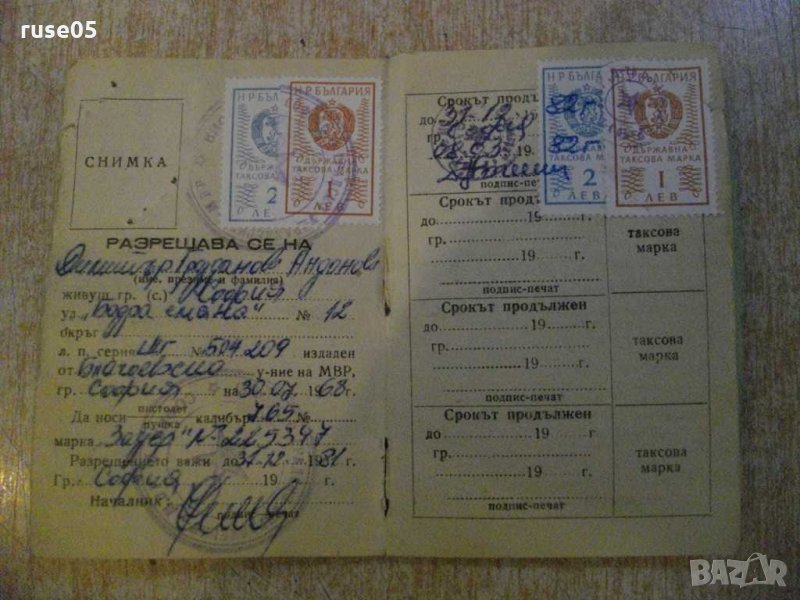 ruse05
СНИМКА
Н Р БЪЛГАРИЯ
ДЪРЖАВНА
ТАКСОВА МАРКА
2
ЛЕВ
Н Р БЪЛГАРИЯ
ДЪРЖАВНА
ТАКСОВА МАРКА
1
ЛЕВ
РАЗРЕШАВА СЕ НА
Димитър Йорданов Андонов
(име, презиме и фамилия)
живущ гр. (с.) София
ул. "Бодра смяна" № 12
окръг
л. п. серия № 504209 издаден
от Благоевско у-ние на МВР,
гр. София на 30.07 1968 г.
Да носи пистолет калибър 7.65 №
пушка
марка "Зауер" № 225347
Разрешението важи до 31.12 1981 г.
Гр. София 19 г.
Началник:
подпис-печат
Срокът продължен
до 31.12 82 г.
гр. София
02.03. 19 82 г.
подпис-печат
Н Р БЪЛГАРИЯ
ДЪРЖАВНА
ТАКСОВА МАРКА
2
ЛЕВ
Н Р БЪЛГАРИЯ
ДЪРЖАВНА
ТАКСОВА МАРКА
1
ЛЕВ
Срокът продължен
до 19 г.
гр.
подпис-печат
таксова
марка
Срокът продължен
до 19 г.
гр.
подпис-печат
таксова
марка
Срокът продължен
до 19 г.
гр.
подпис-печат
таксова
марка
BAZAR